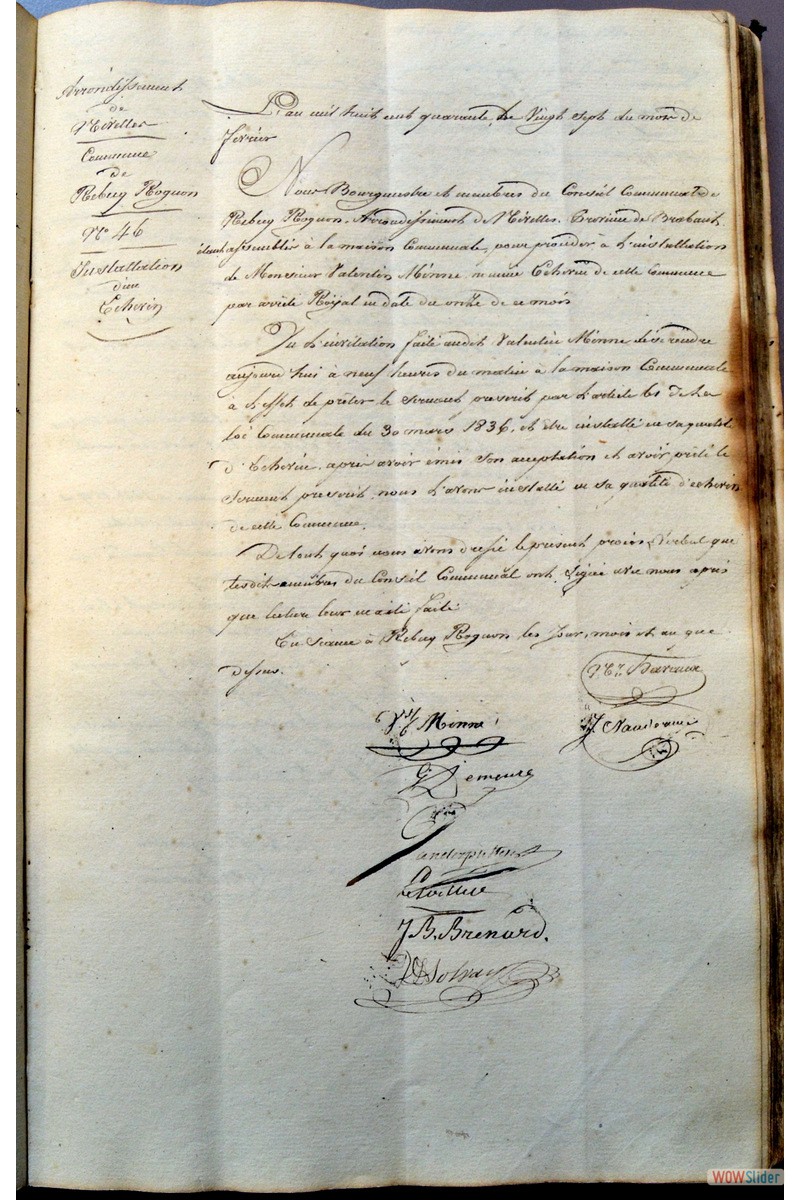 Arrondissement
de
Nivelles
Commune
De
Rebecq Rognon
N° 46
Installation
d'un
Echevin
L'an mil huit cent quarante, le Vingt Sept du mois de
fevrier
Nous Bourgmestre et membres du Conseil Communale de
Rebecq Rognon, Arrondissement de Nivelles, Province de Brabant
étant assemblés à la maison Communale, pour proceder à L'installation
de Monsieur Valentin Minne nommé Echevin de cette Commune
par arrêté Royal en date du onze de ce mois
Vu L'invitation faite audit Valentin Minne de se rendre
aujourd'hui à neuf heures du matin à la maison Communale
à L'effet de prêter le Serment prescrit par L'article 61 de la
Loi Communale du 30 mars 1836, et être installé en sa qualité
d'Echevin, après avoir émis Son acceptation et avoir prêté le
Serment prescrit, nous L'avons installé en sa qualité d'echevin
de cette Commune.
De tout quoi nous avons dressé le présent procès Verbal que
lesdits membres du Conseil Communal ont Signé avec nous après
que lecture leur en a été faite
En Seance à Rebecq Rognon les Jour, mois et an que
dessus.
Minne
J.
Demeure
J. B. Brenard.
Solvay
WOWSlider